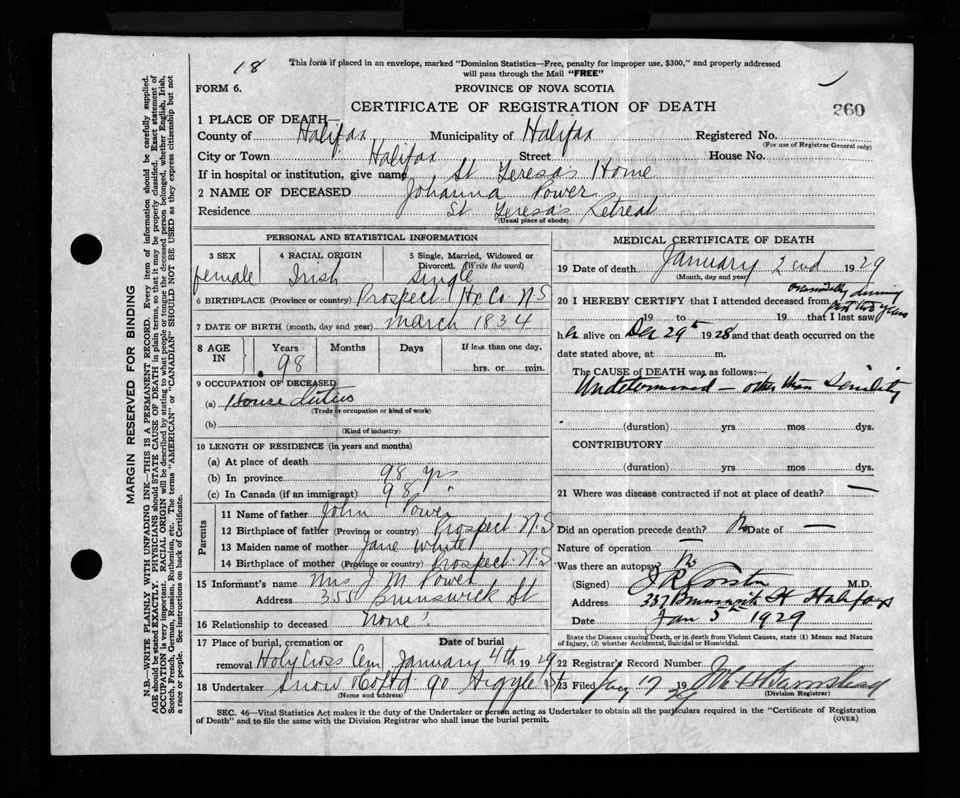 18
This form if placed in an envelope, marked "Dominion Statistics—Free, penalty for improper use, $300," and properly addressed
will pass through the Mail "FREE"
FORM 6.
PROVINCE OF NOVA SCOTIA
CERTIFICATE OF REGISTRATION OF DEATH
260
1 PLACE OF DEATH—
County of Halifax Municipality of Halifax Registered No.
(For use of Registrar General only)
City or Town Halifax Street House No.
If in hospital or institution, give name St Teresa's Home
2 NAME OF DECEASED Johanna Power
Residence St Teresa's Retreat
(Usual place of abode)
PERSONAL AND STATISTICAL INFORMATION
3 SEX 4 RACIAL ORIGIN 5 Single, Married, Widowed or
Divorcett. (Write the word)
female Irish Single
6 BIRTHPLACE (Province or country) Prospect Hx Co N.S
7 DATE OF BIRTH (month, day and year) March 1834
8 AGE IN Years Months Days If less than one day,
98 hrs. or min.
9 OCCUPATION OF DECEASED
(a) House duties
(Trade or occupation or kind of work)
(b)
(Kind of industry)
10 LENGTH OF RESIDENCE (in years and months)
(a) At place of death
(b) In province 98 yrs
(c) In Canada (if an immigrant) 98 "
Parents
11 Name of father John Power
12 Birthplace of father (Province or country) Prospect N.S
13 Maiden name of mother Jane White
14 Birthplace of mother (Province or country) Prospect N.S
15 Informant's name Mrs J M Power
Address 355 Brunswick St
16 Relationship to deceased none
17 Place of burial, cremation or Date of burial
removal Holy Cross Cem January 4th 1929
18 Undertaker Snow Co Ltd 90 Argyle St
(Name and address)
MEDICAL CERTIFICATE OF DEATH
19 Date of death January 2nd 1929
(Month, day and year)
20 I HEREBY CERTIFY that I attended deceased from occasionally during
past two years
19 to 19 that I last saw
her alive on Dec 29th 1928 and that death occurred on the
date stated above, at m.
The CAUSE OF DEATH was as follows:—
Undetermined — other than Senility
(duration) yrs mos dys.
CONTRIBUTORY
(duration) yrs. mos. dys.
21 Where was disease contracted if not at place of death? —
Did an operation precede death? No Date of —
Nature of operation —
Was there an autopsy No
(Signed) J R M.D.
Address 337 Brunswick St Halifax
Date Jan 5th 1929
State the Disease causing Death, or in death from Violent Causes, state (1) Means and Nature
of Injury, (2) whether Accidental, Suicidal or Homicidal.
22 Registrar's Record Number
23 Filed 17 19
(Division Registrar)
SEC. 46—Vital Statistics Act makes it the duty of the Undertaker or person acting as Undertaker to obtain all the particulars required in the "Certificate of Registration
of Death" and to file the same with the Division Registrar who shall issue the burial permit.
(OVER)
MARGIN RESERVED FOR BINDING
N.B.—WRITE PLAINLY WITH UNFADING INK—THIS IS A PERMANENT RECORD. Every item of information should be carefully supplied.
AGE should be stated EXACTLY. PHYSICIANS should STATE CAUSE OF DEATH in plain terms, so that it may be properly classified. Exact statement of
OCCUPATION is very important. RACIAL ORIGIN will be described by stating to what people or tongue the deceased person belonged, whether English, Irish,
Scotch, French, German, Russian, Ruthenian, etc. The terms "AMERICAN" or "CANADIAN" SHOULD NOT BE USED as they express citizenship but not
a race or people. See instructions on back of Certificate.